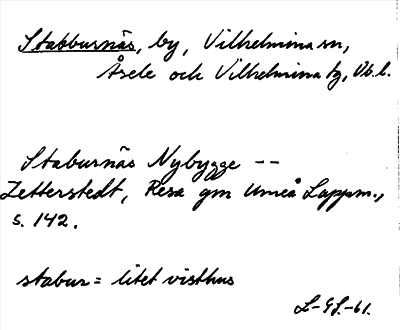 Stabburnäs, by, Vilhelmina sn,
Åsele och Vilhelmina tg, Vb. l.
Staburnäs Nybygge --
Zetterstedt, Resa gm Umeå Lappm.,
s. 142.
stabur = litet visthus